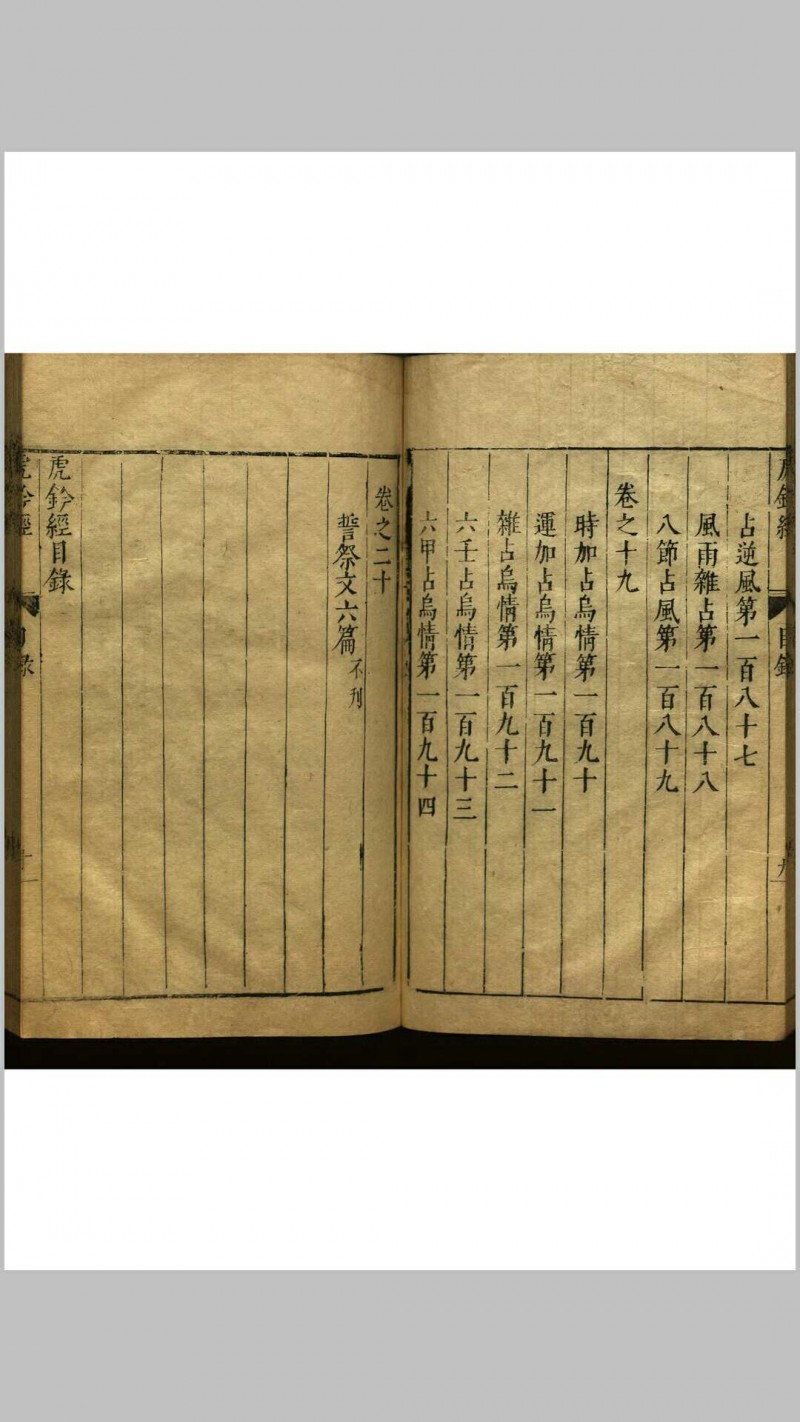 虎鈐經 目錄 九
占逆風第一百八十七
風雨雜占第一百八十八
八節占風第一百八十九
卷之十九
時加占烏情第一百九十
運加占烏情第一百九十一
雜占烏情第一百九十二
六壬占烏情第一百九十三
六甲占烏情第一百九十四
卷之二十
誓祭文六篇不刋
虎鈐經目錄
虎鈐經 目錄 十